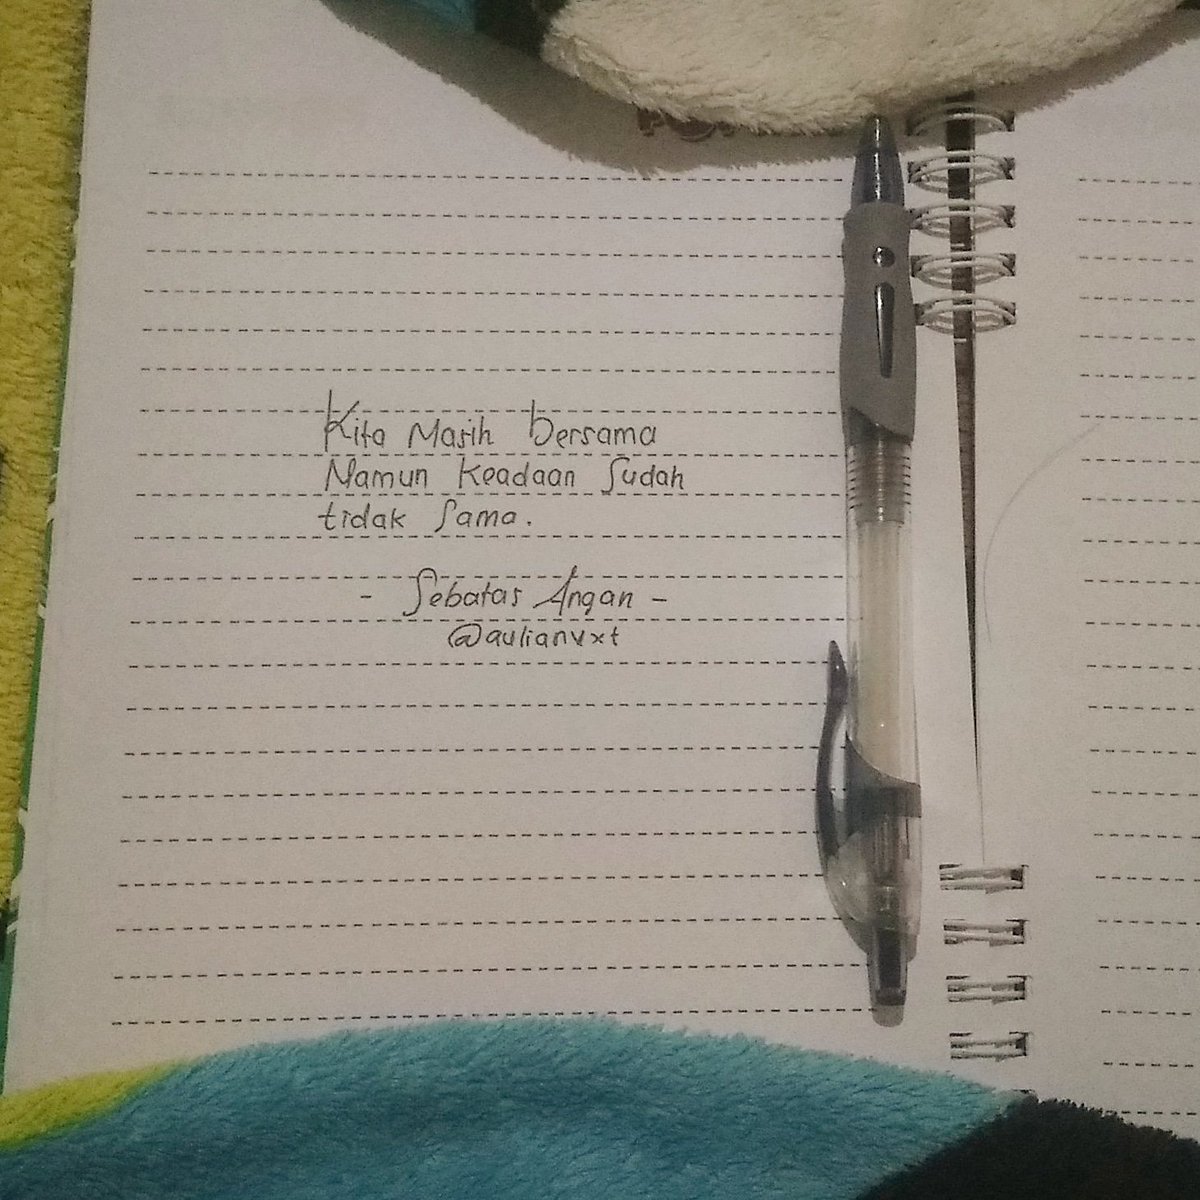 Kita Masih bersama
Namun Keadaan Sudah
tidak Sama.
- Sebatas Angan -
@aulianvxt